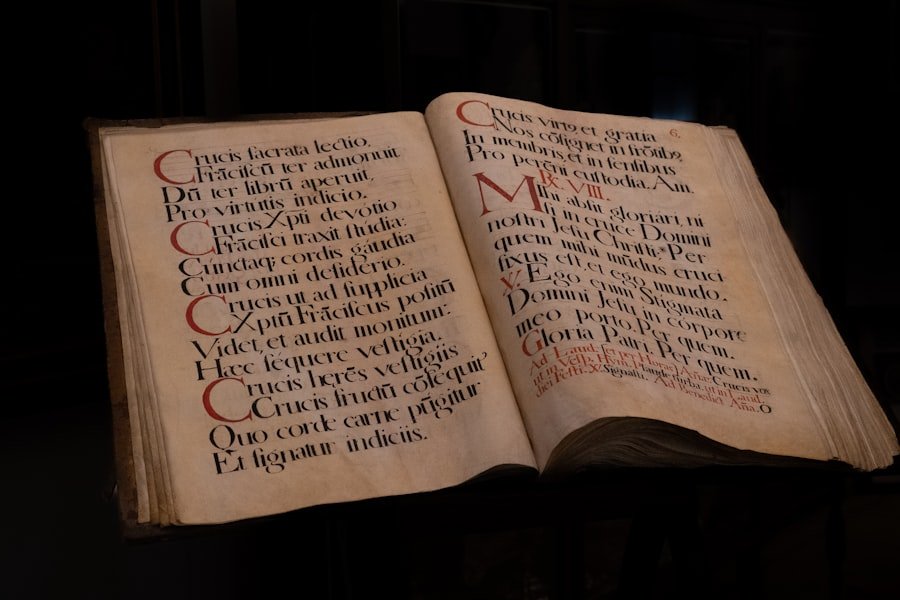 Crucis sacrata lectio,
Frãciscũ ter admonuit
Dũ ter librũ aperuit,
Pro virtutis indicio.
Crucis Xpti devotio
Frãcisci traxit studia:
Cũnctaq; cordis gáudia
Cum omni desiderio.
Crucis ut ad supplicia
Xptũ Frãciscus positũ
Videt, et audit monitum:
Hæc sequere vestigia.
Crucis herẽs vestigiis
Crucis fructũ cõsequit,
Quo corde carne pũgitur
Et signatur indiciis.
6.
Crucis virtꝰ et gratia
Nos cõsignet in frõtibꝰ
In membris, et in sensibus
Pro perẽni custodia. Am.
R. VIII.
Mihi absit gloriári, ni
si in cruce Domini
nostri Jesu Christi: * Per
quem mihi mũdus cruci
fixus est, et ego mundo.
V. Ego enim Stigmata
Domini Jesu in corpore
meo porto. Per quem.
Gloria Patri. Per quem.
Ad Laud. et per Horas, Añæ. Crucis vox
ut in Vesp. Hym. Plaude turba. ut in Laud.
diei Festi. V. Signasti. Ad Benedict. Aña. O